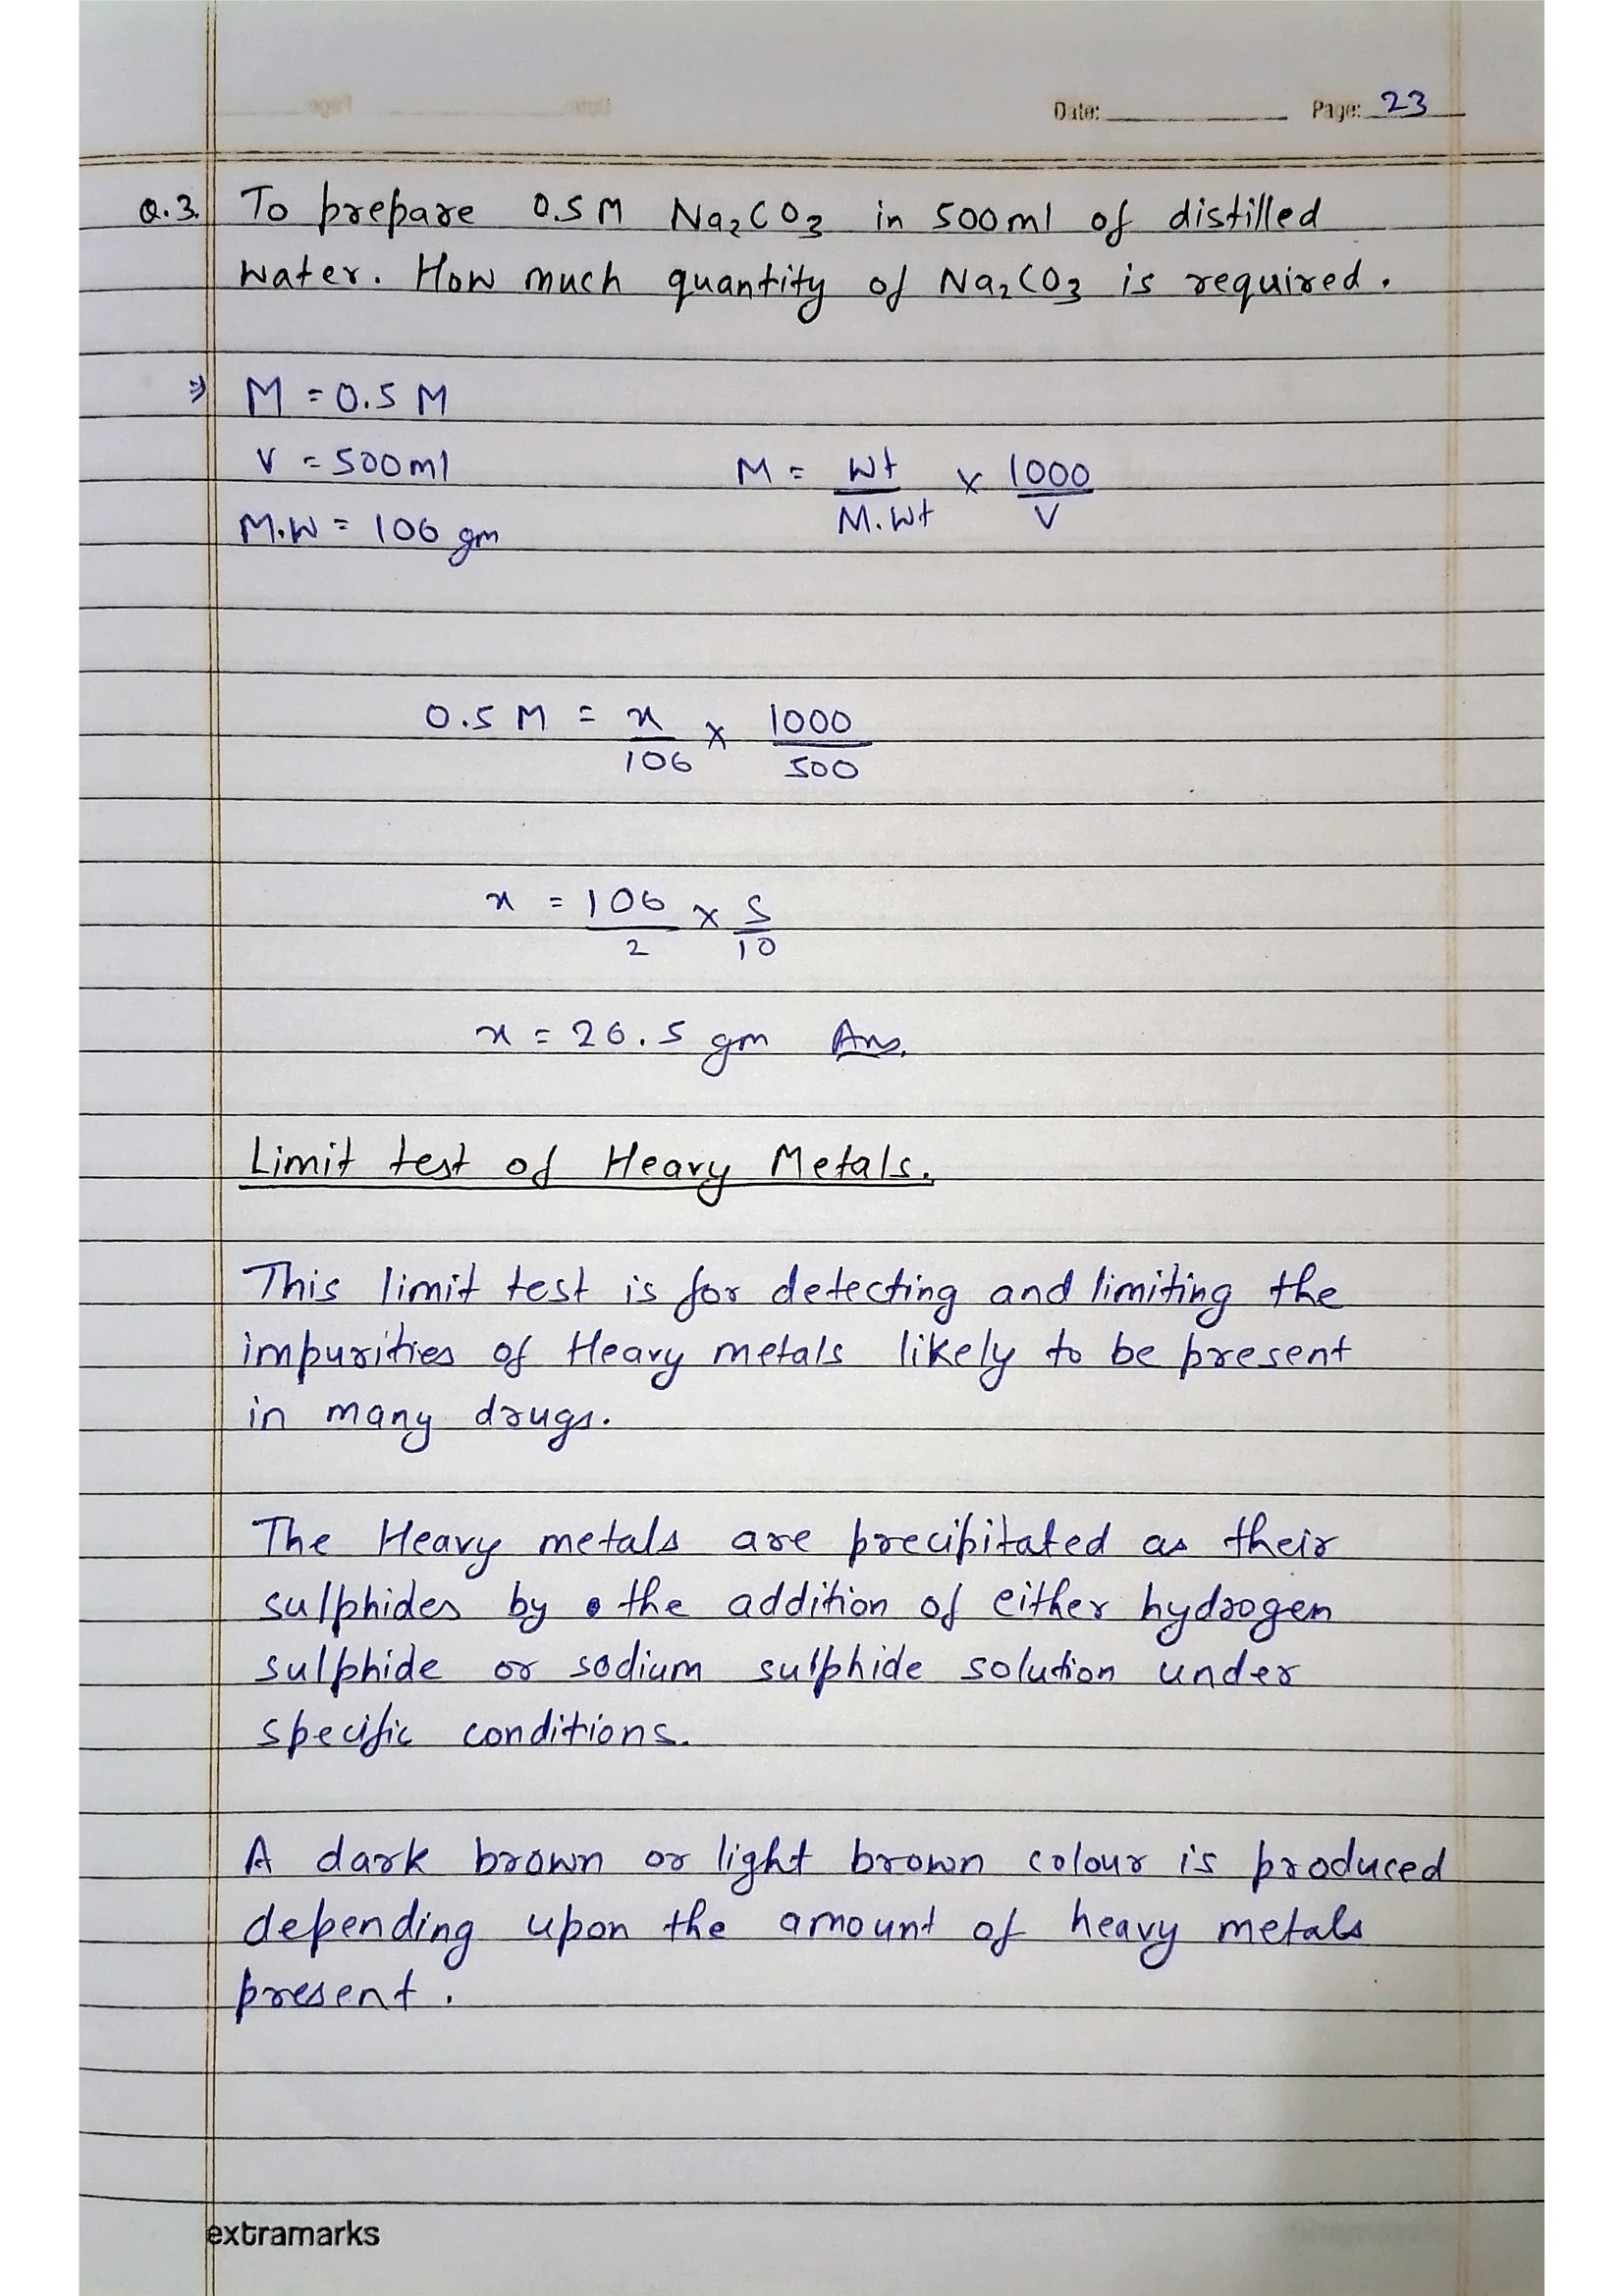 Date: Page: 23
Q.3. To prepare 0.5 M Na₂CO₃ in 500ml of distilled
water. How much quantity of Na₂CO₃ is required.
⇒ M = 0.5 M
V = 500ml M = Wt/M.Wt × 1000/V
M.W = 106 gm
0.5 M = x/106 × 1000/500
x = 106/2 × 5/10
x = 26.5 gm Ans.
Limit test of Heavy Metals.
This limit test is for detecting and limiting the
impurities of Heavy metals likely to be present
in many drugs.
The Heavy metals are precipitated as their
sulphides by the addition of either hydrogen
sulphide or sodium sulphide solution under
specific conditions.
A dark brown or light brown colour is produced
depending upon the amount of heavy metals
present.
extramarks